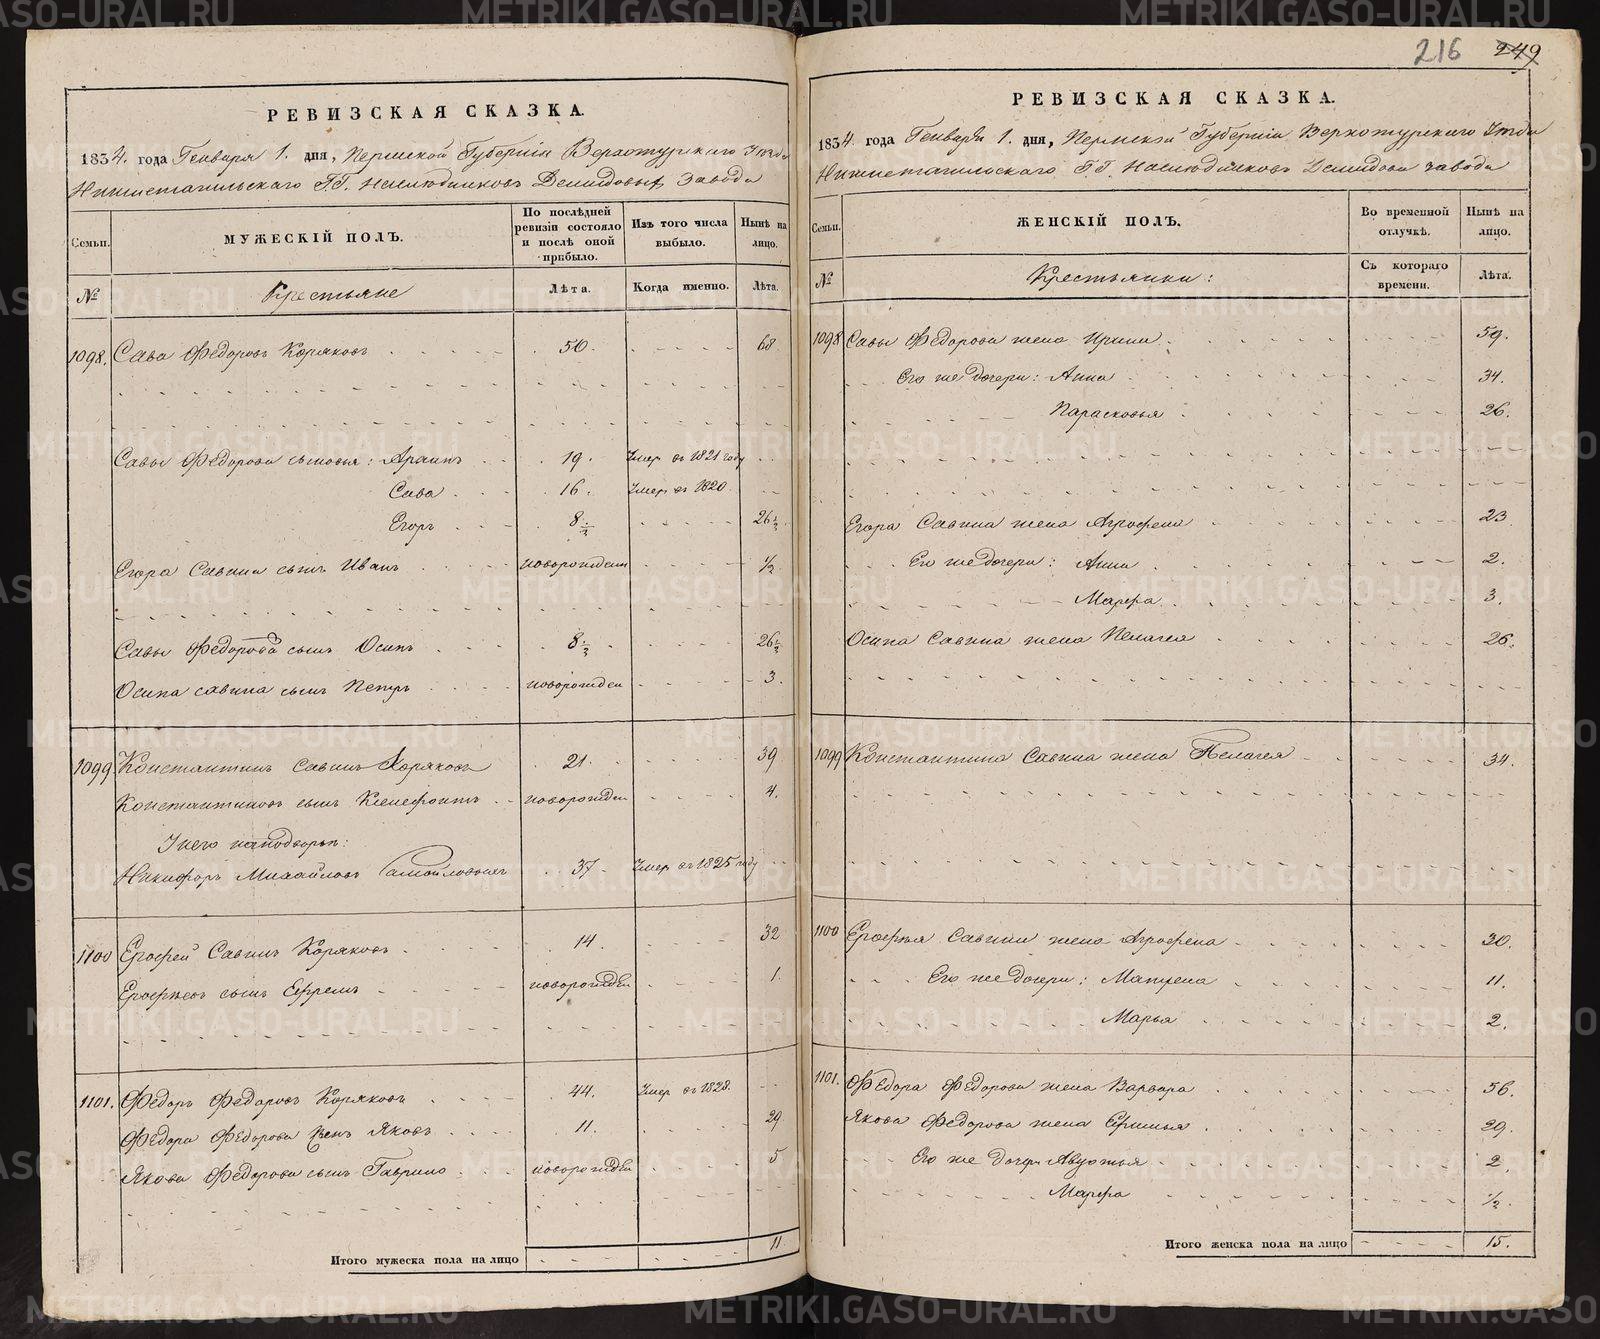 216 249
РЕВИЗСКАЯ СКАЗКА.
1834. года Генваря 1. дня, Пермской Губернiи Верхотурскаго Уѣзда
Нижнетагильскаго Г.Г. Наслѣдниковъ Демидовыхъ Завода
Семьи. МУЖЕСКIЙ ПОЛЪ. По послѣдней ревизiи состояло и послѣ оной прибыло. Изъ того числа выбыло. Нынѣ на лицо.
№ Крестьяне Лѣта. Когда именно. Лѣта.
1098. Сава Федоровъ Коряковъ 50. 68
Савы Федорова сыновья: Архипъ 19. Умер въ 1821 году
Сава 16. Умер въ 1820.
Егоръ 8 1/2 26 1/2
Егора Савина сынъ Иванъ новорожден 1/2
Савы Федорова сынъ Осипъ 8 1/2 26 1/2
Осипа Савина сынъ Петръ новорожден 3.
1099 Константинъ Савинъ Коряковъ 21. 39
Константиновъ сынъ Ксенефонтъ новорожден 4.
У него на подворьѣ:
Никифоръ Михайловъ Самойловыхъ 37. Умер въ 1825 году
1100 Ерофей Савинъ Коряковъ 14. 32
Ерофѣевъ сынъ Ефремъ новорожден 1.
1101. Федоръ Федоровъ Коряковъ 44. Умер въ 1828.
Федора Федорова сынъ Яковъ 11. 29
Якова Федорова сынъ Гаврило новорожден 5
Итого мужеска пола на лицо 11
РЕВИЗСКАЯ СКАЗКА.
1834. года Генваря 1. дня, Пермской Губернiи Верхотурскаго Уѣзда
Нижнетагильскаго Г.Г. Наслѣдниковъ Демидовы завода
Семьи. ЖЕНСКIЙ ПОЛЪ. Во временной отлучкѣ. Нынѣ на лицо.
№ Крестьянки: Съ котораго времени. Лѣта.
1098 Савы Федорова жена Ирина 59.
Его же дочери: Анна 34.
Парасковья 26.
Егора Савина жена Агрофена 23
Его же дочери: Анна 2.
Марфа 3.
Осипа Савина жена Пелагея 26.
1099 Константина Савина жена Пелагея 34.
1100 Ерофѣя Савина жена Агрофена 30.
Его же дочери: Матрена 11.
Марья 2.
1101. Федора Федорова жена Варвара 56.
Якова Федорова жена Ефимья 29.
Его же дочери Авдотья 2.
Марфа 1/2.
Итого женска пола на лицо 15.
METRIKI.GASO-URAL.RU